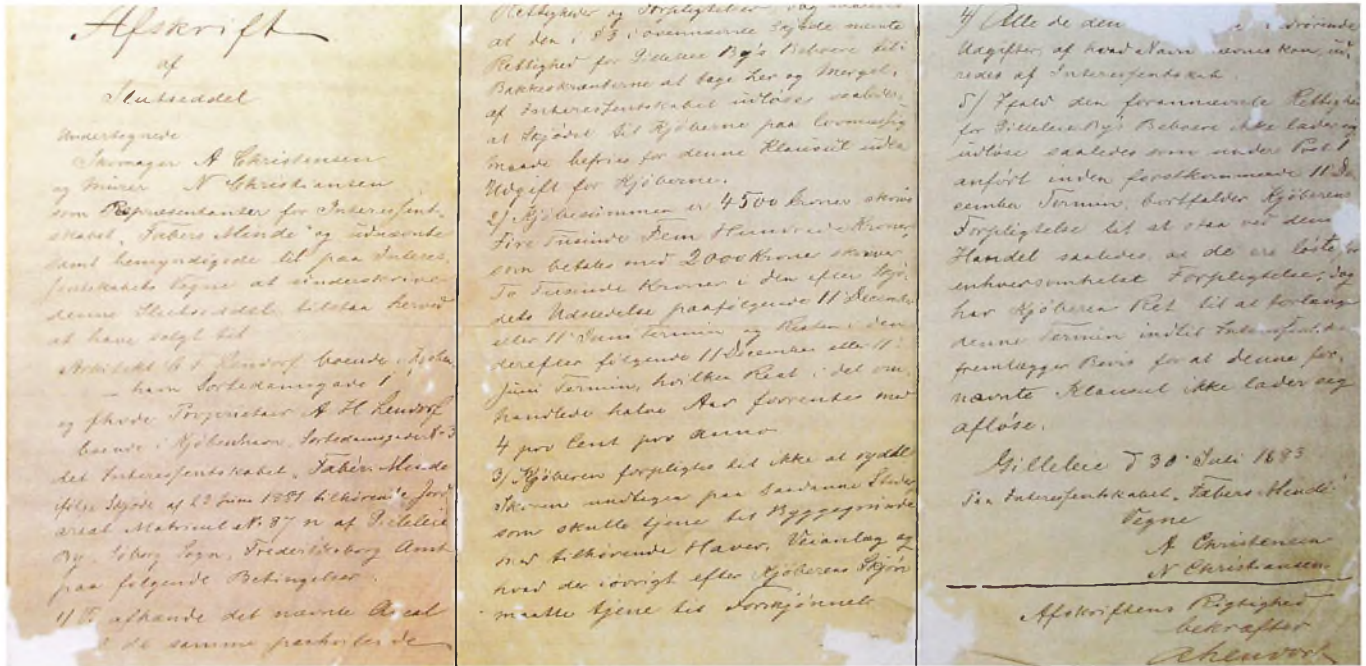 Afskrift
af
Slutseddel
Undertegnede
Skomager A Christensen
og Murer N Christiansen
som Repræsentanter for Interessent-
skabet "Fabers Minde" og udnævnte
samt bemyndigede til paa Interes-
sentskabets Vegne at underskrive
denne Slutseddel, tilstaa herved
at have solgt til
Arkitekt C F Lendorf boende i Kjøben-
havn Sortedamsgade 1
og fhvde Proprietair A H Lendorf
boende i Kjøbenhavn, Sortedamsgade No 3
det Interessentskabet "Fabers Minde
ifølge Skjøde af 23 Juni 1881 tilhørende Jord
areal Matricul No 87 n af Gilleleie
By, Søborg Sogn, Frederiksborg Amt
paa følgende Betingelser.
1) afhænde det nævnte Areal
de samme paahvilende
Rettigheder og Forpligtelser, dog saaledes
at den i § 3 i ovennævnte Skjøde nævnte
Rettighed for Gilleleie By's Beboere til i
Bakkeskrænterne at tage Ler og Mergel,
af Interessentskabet udløses saaledes,
at Skjødet til Kjøberne paa lovmæssig
Maade befries for denne Klausul uden
Udgift for Kjøberne.
2) Kjøbesummen er 4500 Kroner skriver
Fire Tusinde Fem Hundrede Kroner,
som betales med 2000 Krone skriver
To Tusinde Kroner i den efter Skjø-
dets Udstedelse paafølgende 11 December
eller 11 Juni Termin og Resten i den
derefter følgende 11 December eller 11
Juni Termin, hvilken Rest i det om-
handlede halve Aar forrentes med
4 pro Cent pro anno
3) Kjøberen forpligtes til ikke at rydde
Skoven undtagen paa saadanne Steder
som skulle tjene til Byggegrunde
med tilhørende Haver, Veianlæg og
hvad der iøvrigt efter Kjøberens Skjøn
maatte tjene til Forskjønnelse
4) Alle de den
Udgifter, af hvad Navn nævnes kan, ud-
redes af Interessentskabet.
5) Ifald den forannævnte Rettighed
for Gilleleie By's Beboere ikke lader sig
udløse saaledes som under Post 1
anført inden førstkommende 11 De-
cember Termin, bortfalder Kjøberens
Forpligtelse til at staa ved denne
Handel saaledes, at de ere løste fra
enhversomhelst Forpligtelse, dog
har Kjøberen Ret til at forlænge
denne Termin indtil
fremlægger Bevis for at denne for-
nævnte Klausul ikke lader sig
afløse.
Gilleleie d 30 Juli 1883
Paa Interessentskabet "Fabers Minde"
Vegne
A Christensen
N Christiansen
Afskriftens Rigtighed
bekræfter